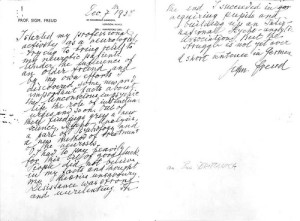 PROF. SIGM. FREUD
Dec 7th 1938
I started my professional
activity as a neurologist
trying to bring relief to
my neurotic patients.
Under the influence of
an older friend and
by my own efforts I
discovered some new and
important facts about
the unconscious in psychic
life, the role of instinctual
urges and so on. Out of
these findings grew a new
science, Psycho-Analysis,
a part of Psychology and
a new method of treatment
of the neuroses.
I had to pay heavily
for this bit of good luck.
People did not believe
in my facts and thought
my theories unsavoury.
Resistance was strong
and unrelenting. In
the end I succeeded in
acquiring pupils and
building up an Inter-
national Psycho-Analytic
Association. But the
struggle is not yet over.
Sigm. Freud